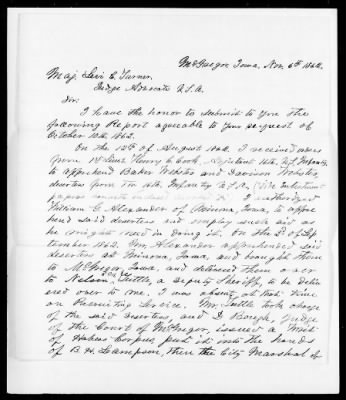 McGregor, Iowa, Nov. 6th 1862.
Maj. Levi C. Turner.
Judge Advocate U.S.A.
Sir:
I have the honor to submit to you the
following Report agreeable to your request of
October 10th, 1862.
On the 12th of August 1862. I received orders
from 1st Lieut. Henry C. Cook, Adjutant 16th, U.S. Infantry
to apprehend Baker Webster and Davison Webster,
deserters from the 16th, Infantry U.S.A.
I authorized
William E. Alexander of Winona, Iowa, to appre-
hend said deserters and employ such aid as
he might need in doing it. On the 2d of Sep-
tember 1862. Wm. Alexander apprehended said
deserters at Winona, Iowa, and brought them
to McGregor, Iowa, and delivered them over
to Nelson Tuttle, a deputy Sheriff, to be deliv-
ered over to me, I was absent at that time
on Recruiting Service. Mr. Tuttle took charge
of the said deserters, and D. Baugh, judge
of the Court of McGregor, issued a Writ
of Habeas Corpus, put it into the hands
of B. H. Sampson, then the City Marshal of